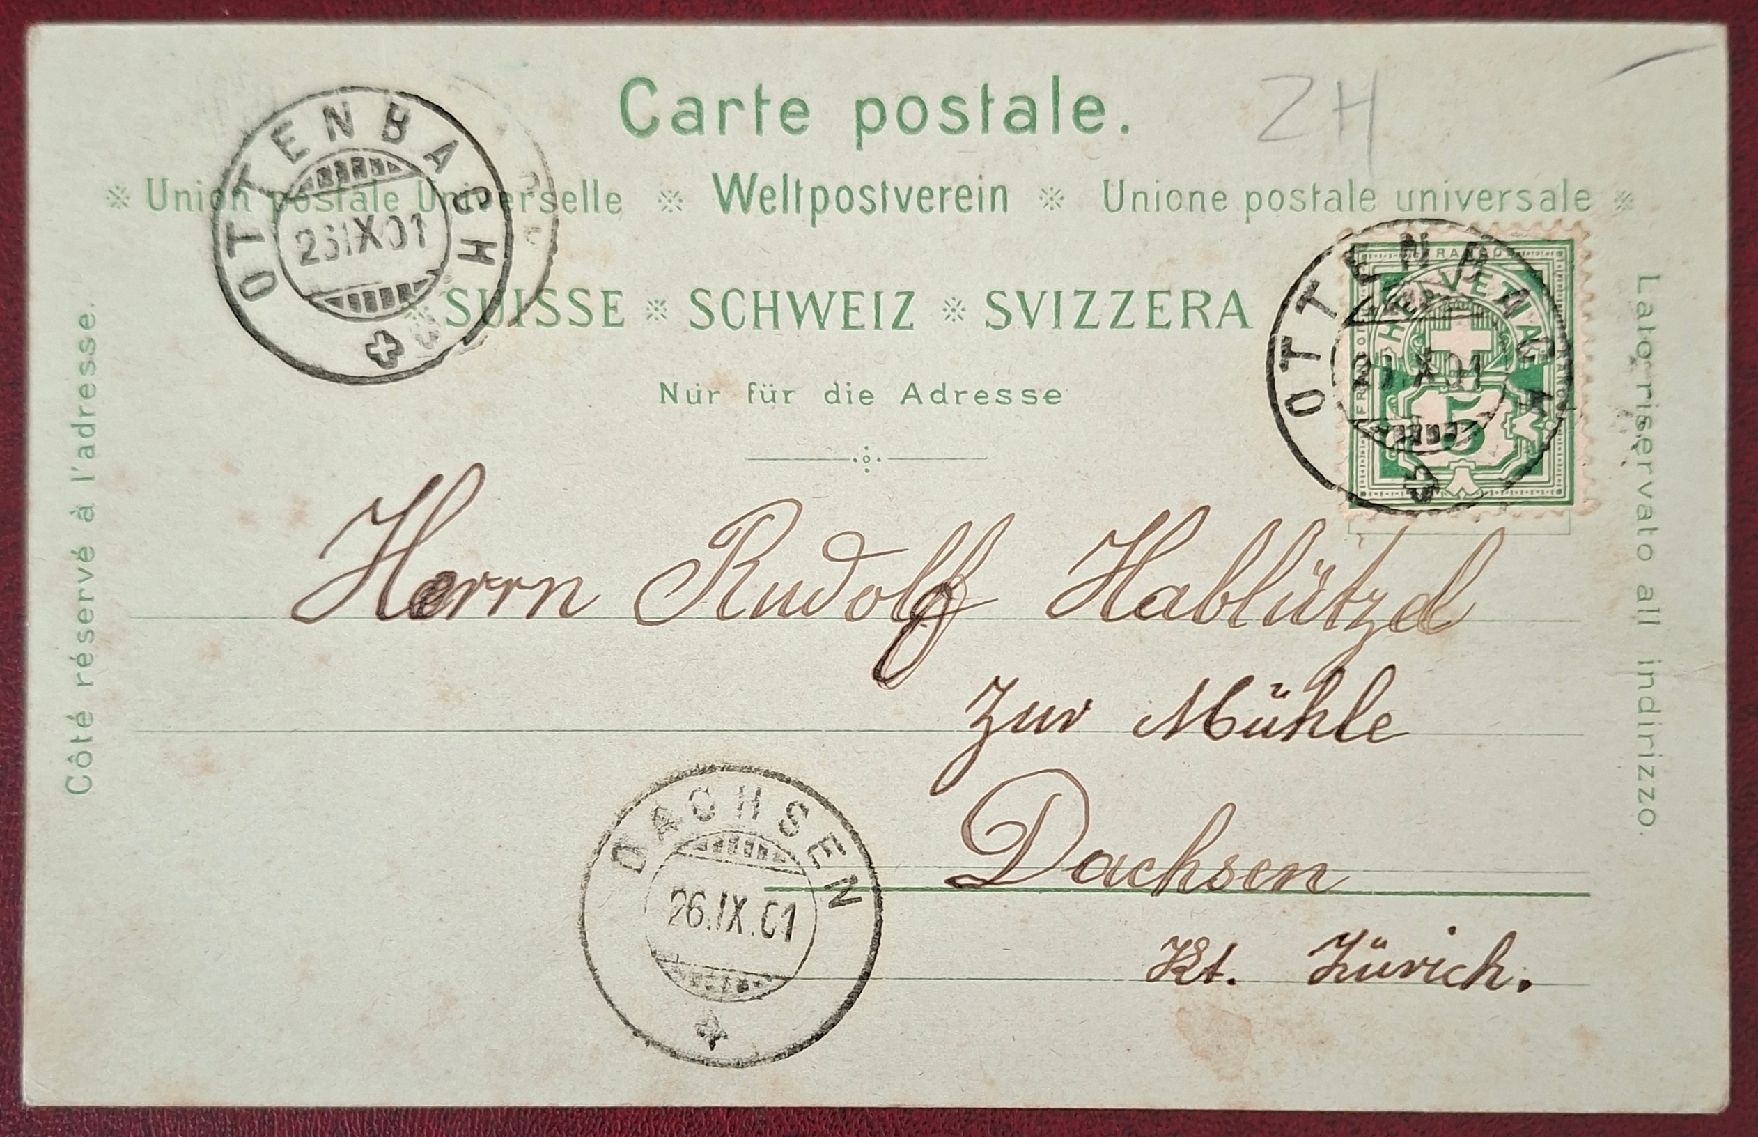 ZH
Carte postale.
Union postale Universelle ※ Weltpostverein ※ Unione postale universale
SUISSE ※ SCHWEIZ ※ SVIZZERA
Nur für die Adresse
Côté réservé à l'adresse.
Lato riservato all indirizzo.
OTTENBACH
IX 01
OTTENBACH
IX 01
FRANCO
HELVETIA
5
Herrn Rudolf Hablützel
zur Mühle
Dachsen
Kt. Zürich.
DACHSEN
26.IX.01